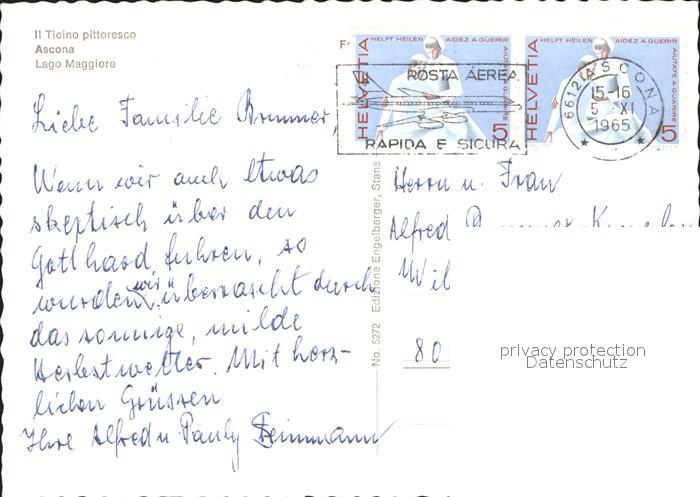 Il Ticino pittoresco
Ascona
Lago Maggiore
HELVETIA
HELFT HEILEN AIDEZ A GUERIR
AIUTATE A GUARIRE
5
HELVETIA
HELFT HEILEN AIDEZ A GUERIR
AIUTATE A GUARIRE
5
POSTA AEREA
RAPIDA E SICURA
6612 ASCONA
15-16
5. XI
1965
Liebe Familie Brunner,
Wenn wir auch etwas
skeptisch über den
Gotthard fuhren, so
wurden wir überrascht durch
das sonnige, milde
Herbstwetter. Mit herz-
lichen Grüssen
Ihre Alfred u Pauly
No. 5272 Edizione Engelberger, Stans
Herrn u. Frau
Alfred
Wil
80
privacy protection
Datenschutz